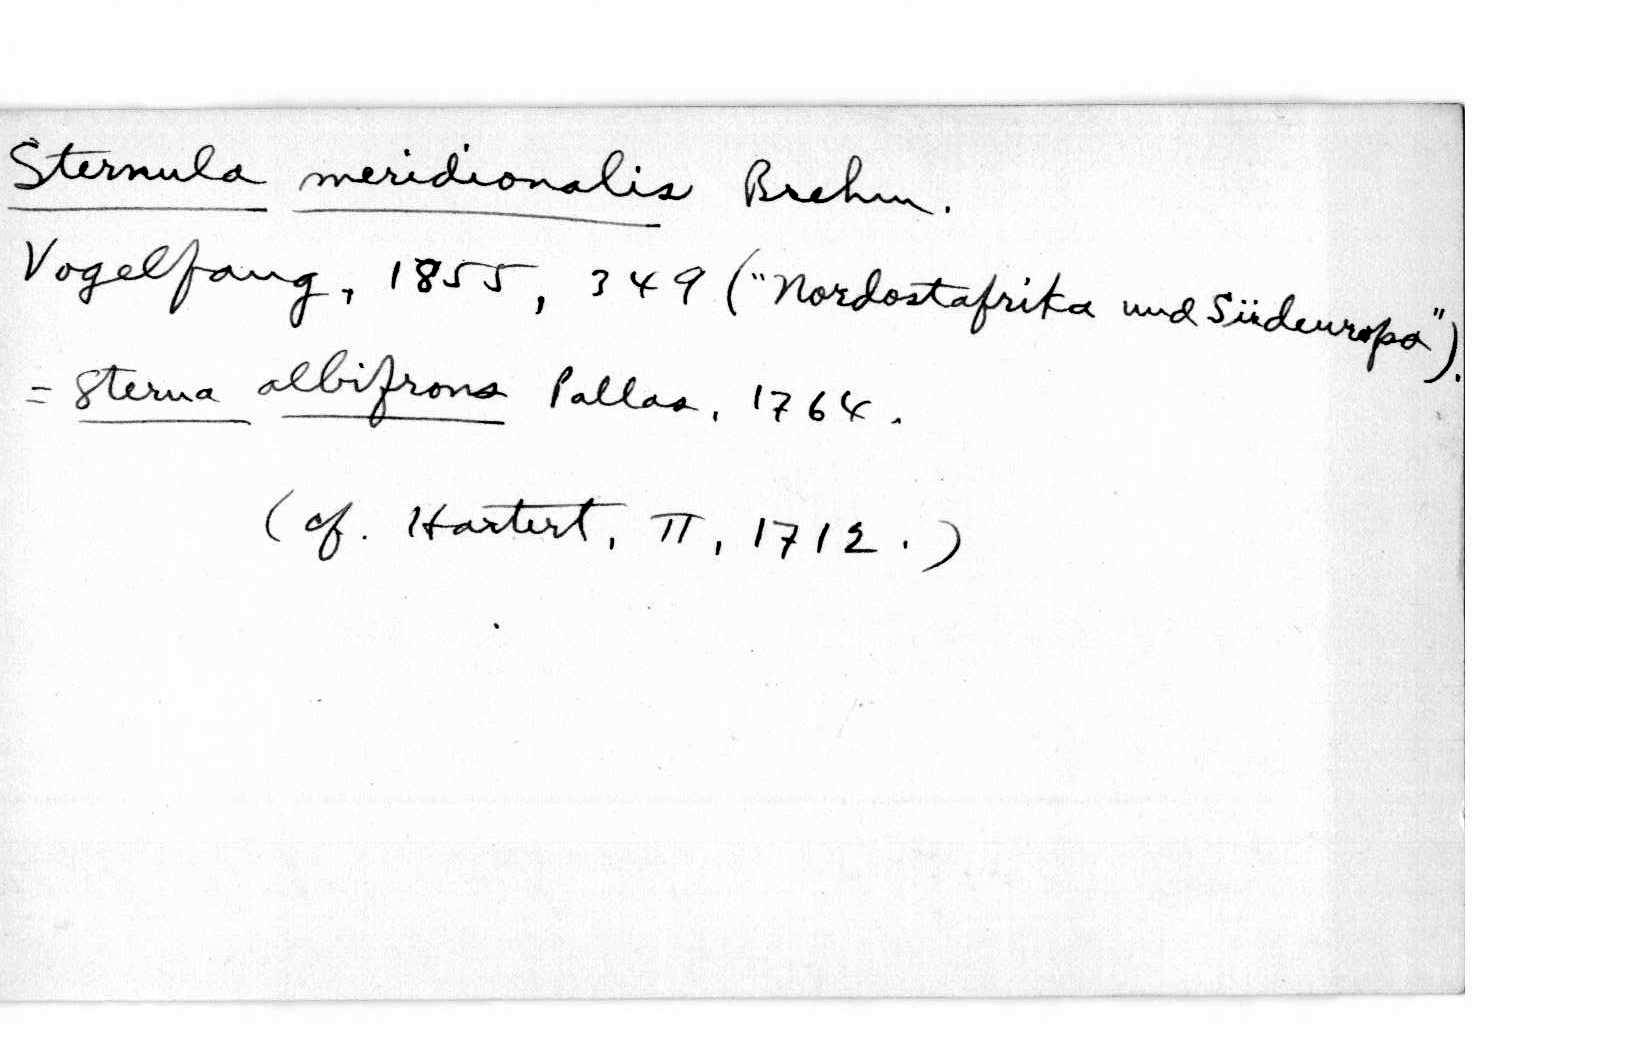 Sternula meridionalis Brehm.
Vogelfang, 1855, 349 ("Nordostafrika und Südeuropa").
= Sterna albifrons Pallas, 1764.
(cf. Hartert, II, 1712.)